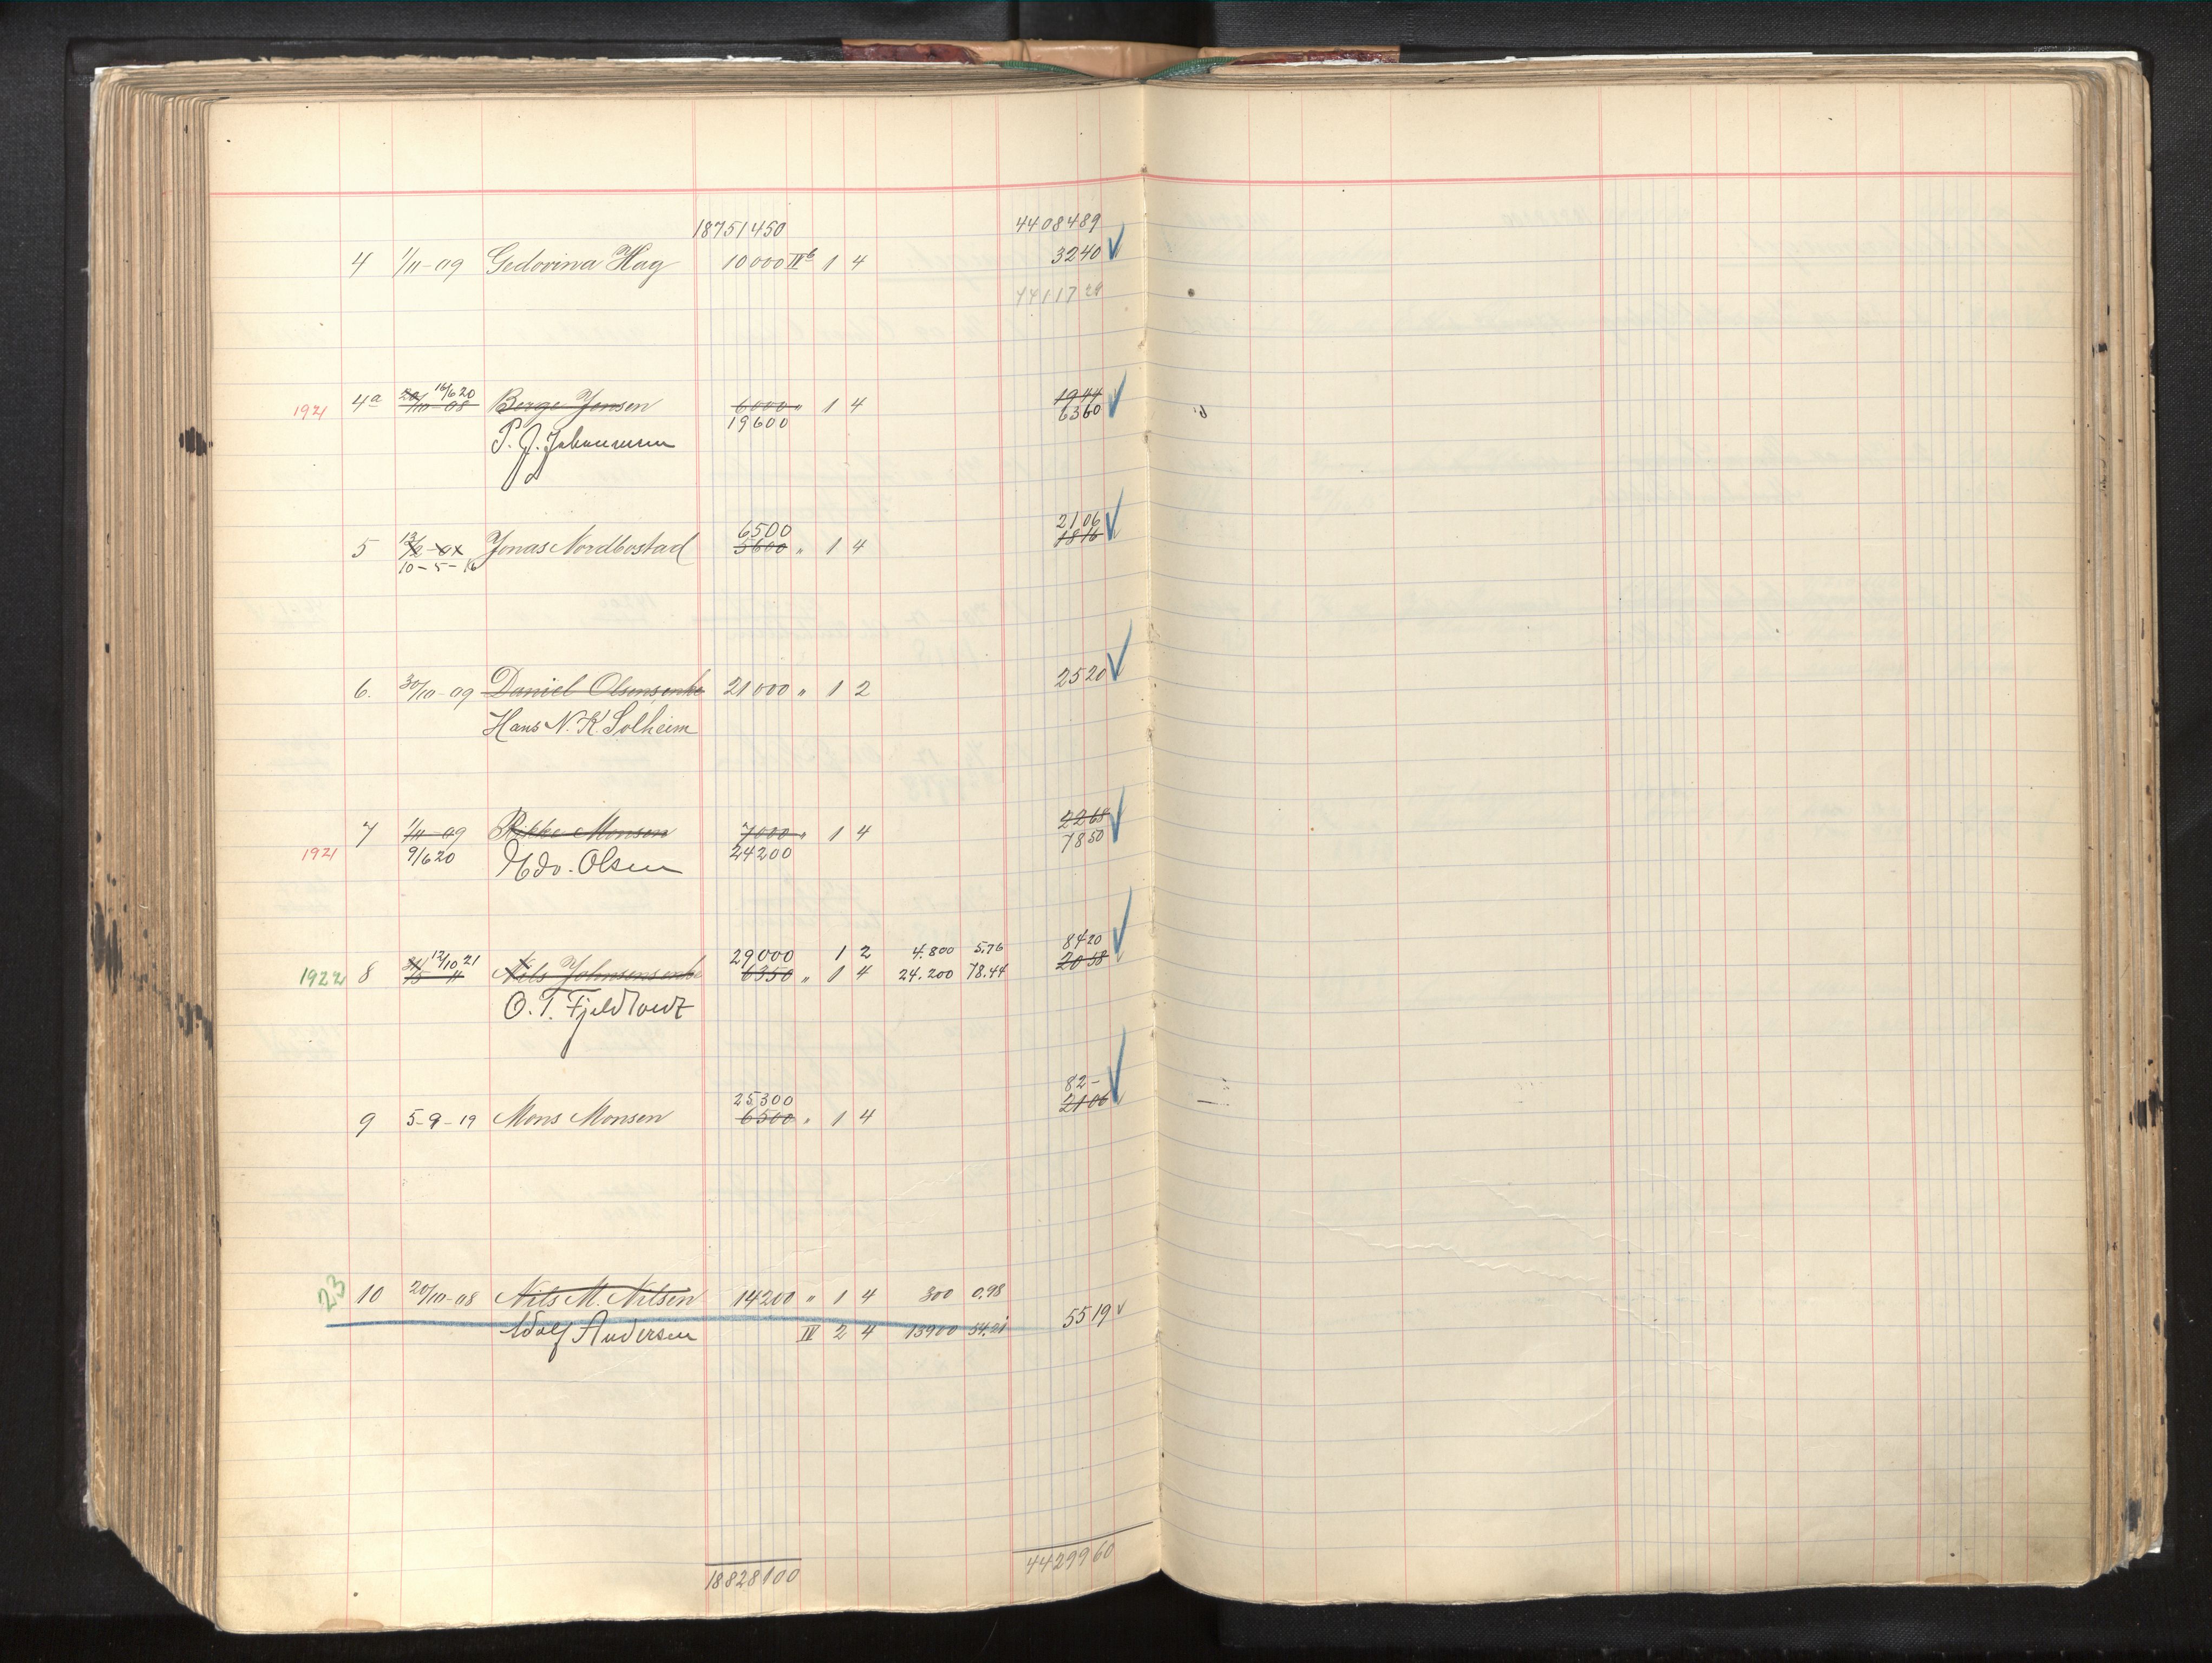 18751450 4408489
4 1/11-09 Gedovina Hag 10000 IIb 1 4 3240
4411729
16/6 20 1944
1921 4a 20/10-08 Berge Jensen 6000 " 1 4 6360
19600
P. J. Johannesen
6500 2106
5 Jonas Nordbostad 5600 " 1 4 1816
10-5-16
6. 30/10-09 Daniel Olsens enke 21000 " 1 2 2520
Hans N. K. Solheim
7 1/11-09 Rikke Monsen 7000 " 1 4 2268
1921 9/6 20 Edv. Olsen 24200 7850
12/10 21 29000 1 2 4.800 5,76 8420
1922 8 Nils Johnsens enke 6350 " 1 4 24.200 78.44 2058
O. T. Fjeldtvedt
25300 82-
9 5-9-19 Mons Monsen 6500 " 1 4 2106
23 10 20/10-08 Nils M. Nilsen 14200 " 1 4 300 0,98
Adolf Andersen IV 2 4 13900 54.21 5519
18828100 4429960